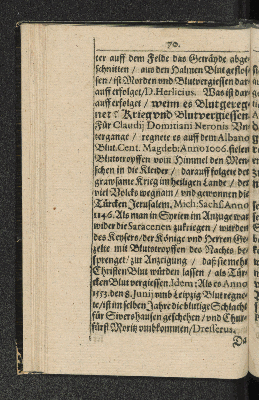 70.
ter auff dem Felde das Geträyde abge-
schnitten / aus den Halmen Blut geflos-
sen / ist Morden und Blutvergiessen dar-
auff erfolget / D. Herlicius. Was ist dar-
auff erfolget / wenn es Blut gereg-
net? Krieg und Blutvergiessen.
Für Claudij Domitiani Neronis Un-
tergange / regnete es auff dem Albano
Blut. Cent. Magdeb: Anno 1006. fielen
Blutstropffen vom Himmel den Men-
schen in die Kleider / darauff folgete der
grawsame Krieg im heiligen Lande / der
viel Volcks wegnam / und gewonnen die
Türcken Jerusalem. Mich: Sachs. Anno
1146. Als man in Syrien im Anzuge war
wider die Saracenen zu kriegen / wurden
des Keysers / der Könige und Herren Ge-
zelte mit Blutstropffen des Nachts be-
sprenget / zur Anzeigung / daß sie mehr
Christen Blut würden lassen / als Tür-
cken Blut vergiessen. Idem: Als es Anno
1553. den 8. Junij umb Leipzig Blut regne-
te / ist im selben Jahre die blutige Schlacht
für Siwershausen geschehen / und Chur-
fürst Moritz umbkommen / Dresserus.
Da